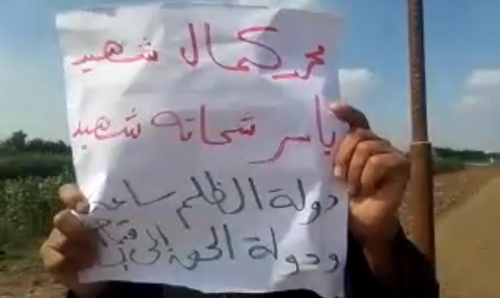 محمد كمال شهيد
ياسر شحاته شهيد
دولة الظلم ساعة
ودولة الحق إلى